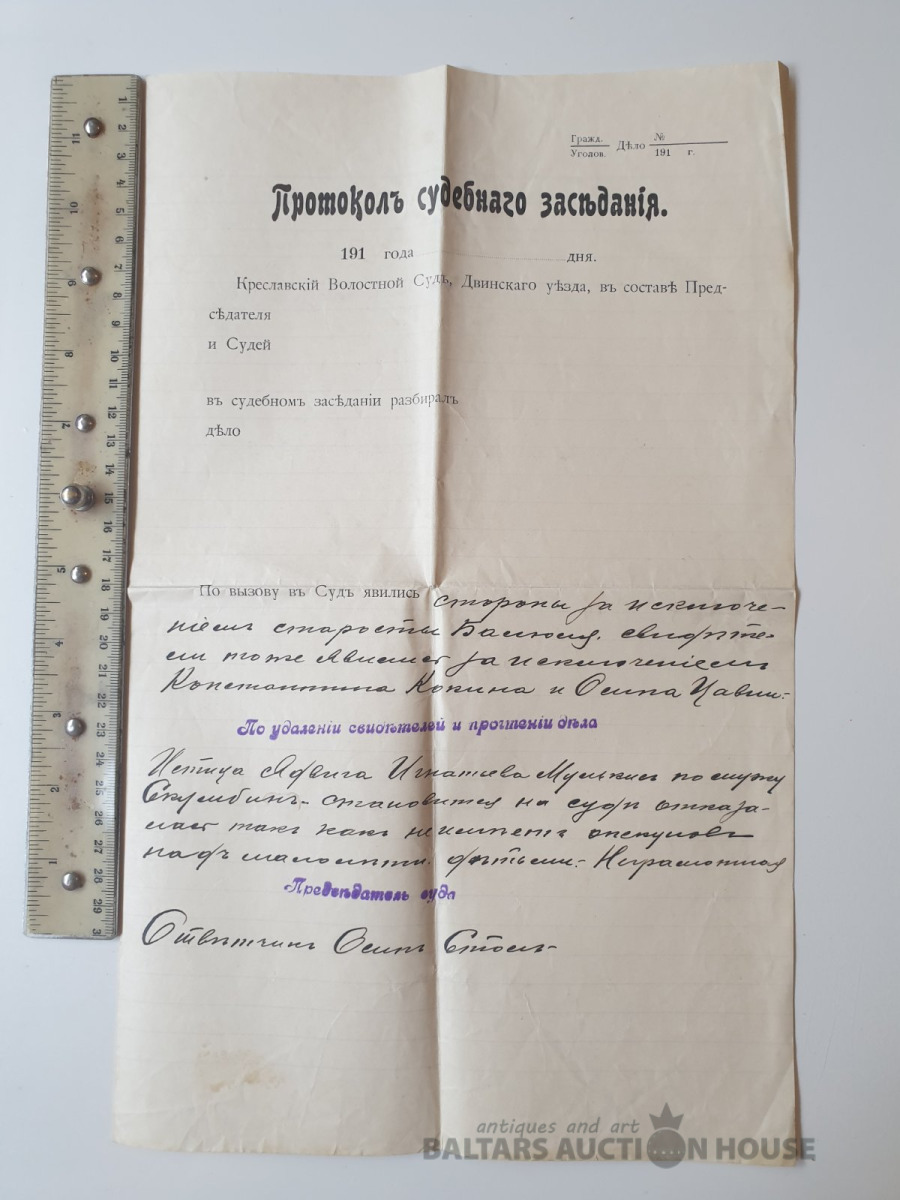 Гражд. Дѣло №
Уголов. 191 г.
Протоколъ судебнаго засѣданія.
191 года дня.
Креславскій Волостной Судъ, Двинскаго уѣзда, въ составѣ Пред-
сѣдателя
и Судей
въ судебномъ засѣданіи разбиралъ
дѣло
По вызову въ Судъ явились стороны за исключе-
ніемъ старосты свидѣте-
ли тоже за исключеніемъ
Константина Кокина и Осипа
По удаленіи свидѣтелей и прочтеніи дѣла
Истица Ядвига Игнатьева по мужу
становится на судъ отказа-
лась такъ какъ не имѣетъ опекуновъ
надъ малолѣтн. дѣтьми. Неграмотная
Предсѣдатель суда
Отвѣтчикъ Осипъ
antiques and art
BALTARS AUCTION HOUSE